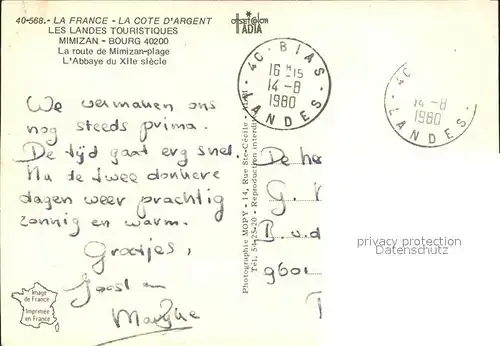 40-568.- LA FRANCE - LA COTE D'ARGENT
LES LANDES TOURISTIQUES
MIMIZAN - BOURG 40200
La route de Mimizan-plage
L'Abbaye du XIIe siècle
offset color
IADIA
40 - BIAS
16 H 15
14-8
1980
LANDES
40
14-8
1980
LANDES
We vermaken ons
nog steeds prima.
De tijd gaat erg snel.
Na de twee donkere
dagen weer prachtig
zonnig en warm.
Groetjes,
Joost en
De he
G.
B.v.d
9601
Photographie MOPY - 14, Rue Ste-Cécile
Tél. 54-25-20 - Reproduction interdite
privacy protection
Datenschutz
Image
de France
Imprimée
en France